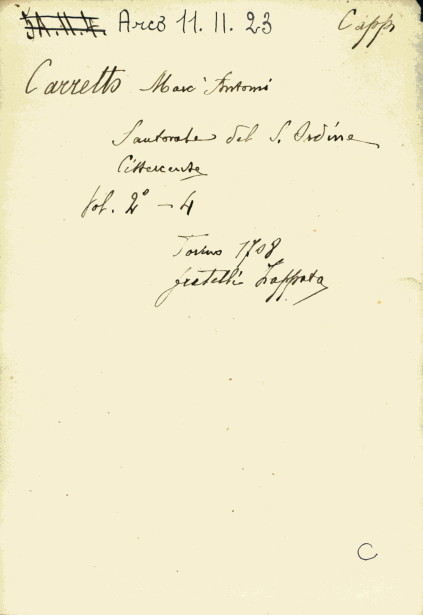 Arco 11. II. 23 Capp
Carretto Marc' Antoni
Santorale del S. Ordine
Cistercense
Vol. 2° - 4
Torino 1708
fratelli Zappata
C